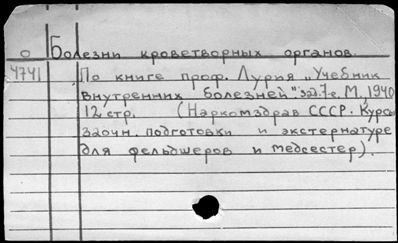 О Болезни кроветворных органов.
4741 По книге проф. Лурия „Учебник
внутренних болезней" изд. 7-е. М. 1940
12 стр. (Наркомздрав СССР. Курсы
заочн. подготовки и экстернатуре
для фельдшеров и медсестер).